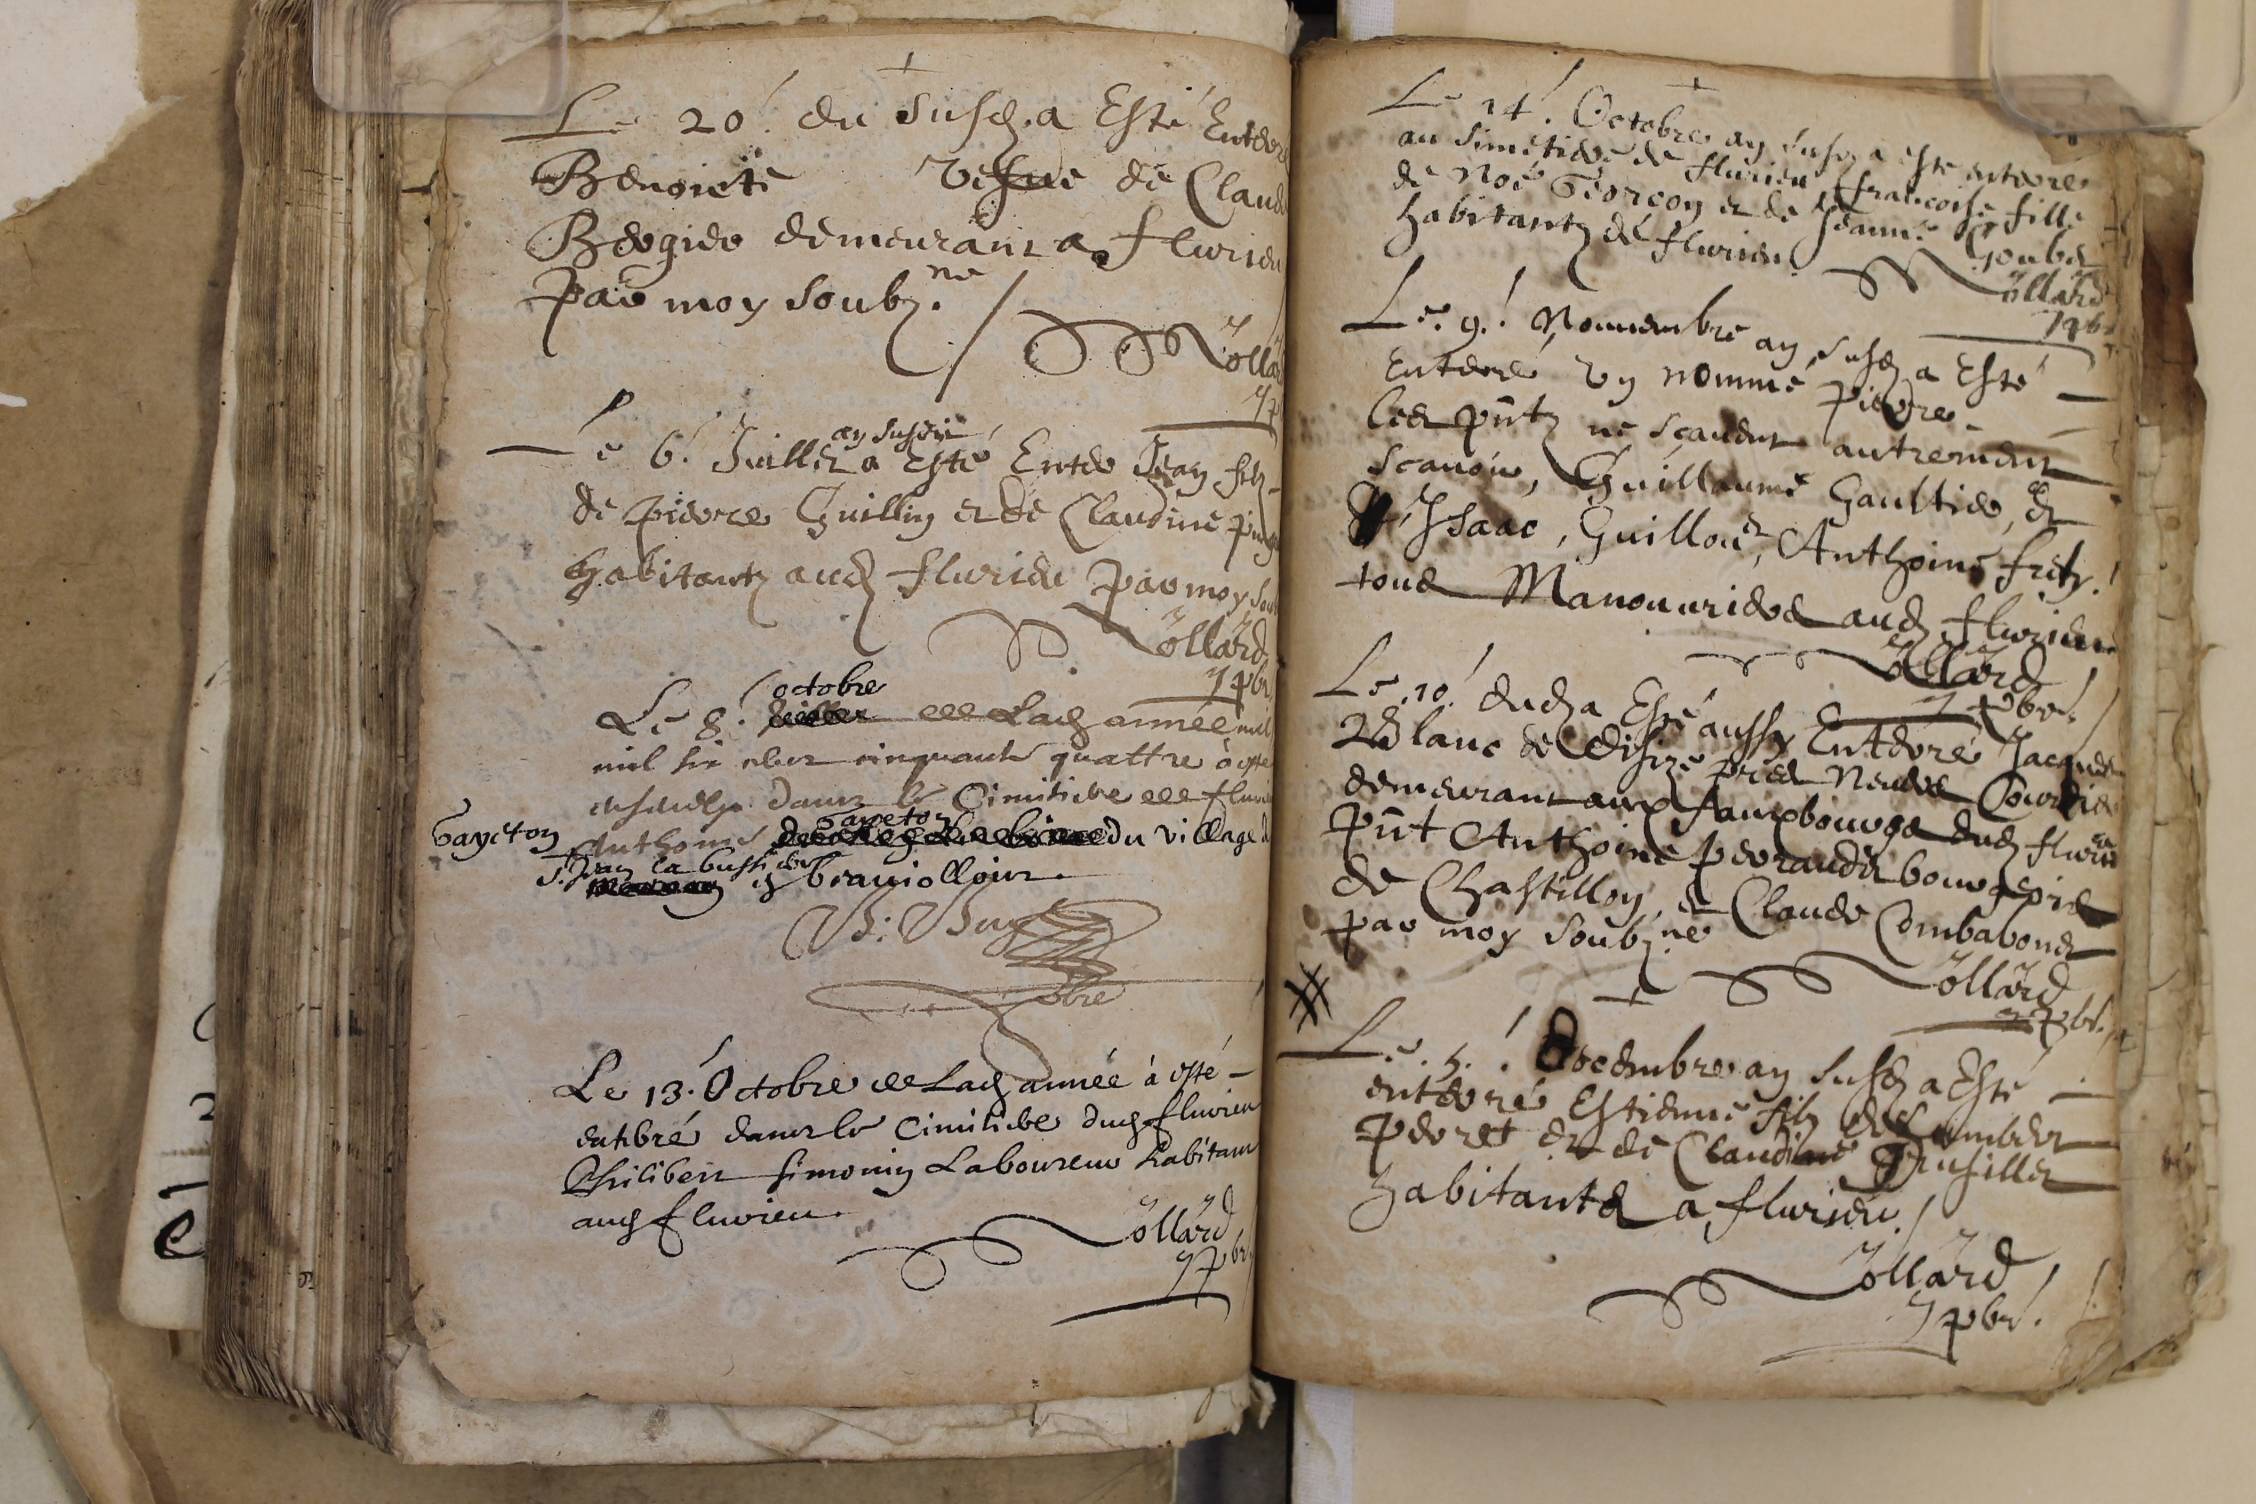 Le 20.e du susd. a Esté Enterre
Benoiete vefue de Claude
Bergier demeurant a flurieu
par moy soubz.né
Jollard
pbr
Le 6.e Juillet a Esté Enter Jean filz
an susdit
de pierre Guillin et de Claudine
habitantz aud. flurieu par moy soub
Jollard
pbr
octobre
Le 8.e de Lad. année mil
mil six cent cinquante quattre à esté
enseuely dans le Cimitiere de flurieu
Gayeton
Gayeton Anthoine du village de
St. Jean la bussiere
en beauiollois.
B.
pbre
Le 13. Octobre de Lad. année à esté
enterré dans le Cimitiere dud. flurieu
Philibert Simonin Laboureur habitant
aud. flurieu.
Jollard
pbr
Le 14.e Octobre an susd. a esté enterre
au simetiere de flurieu francoise fille
de Noé Georcon et de Jeanne Goubet
habitantz de flurieu.
Jollard
pbr
Le 9.e Nouuembre an susd. a Esté
Enterré vn nommé pierre
les pntz ne scauent autrement
scauoir, Guillaume Gaultier, et
Isaac, Guillouet, Anthoine
tous Manouuriers aud. flurieu
Jollard
pbr.
Le 10.e dud. a Esté aussy Enterré Jacques
Blanc de pres Courdier
demeurant aux fauxbourgs dud. flurieu
pnt Anthoine perraudet bourgeois
de Chastillon, et Claude Combabonet
par moy soubz.né
Jollard
pbr.
Le 5.e Decembre an susd. a Esté
enterré Estienne filz de Lambert
peret et de Claudine Trufillet
habitants a flurieu.
Jollard
pbr.